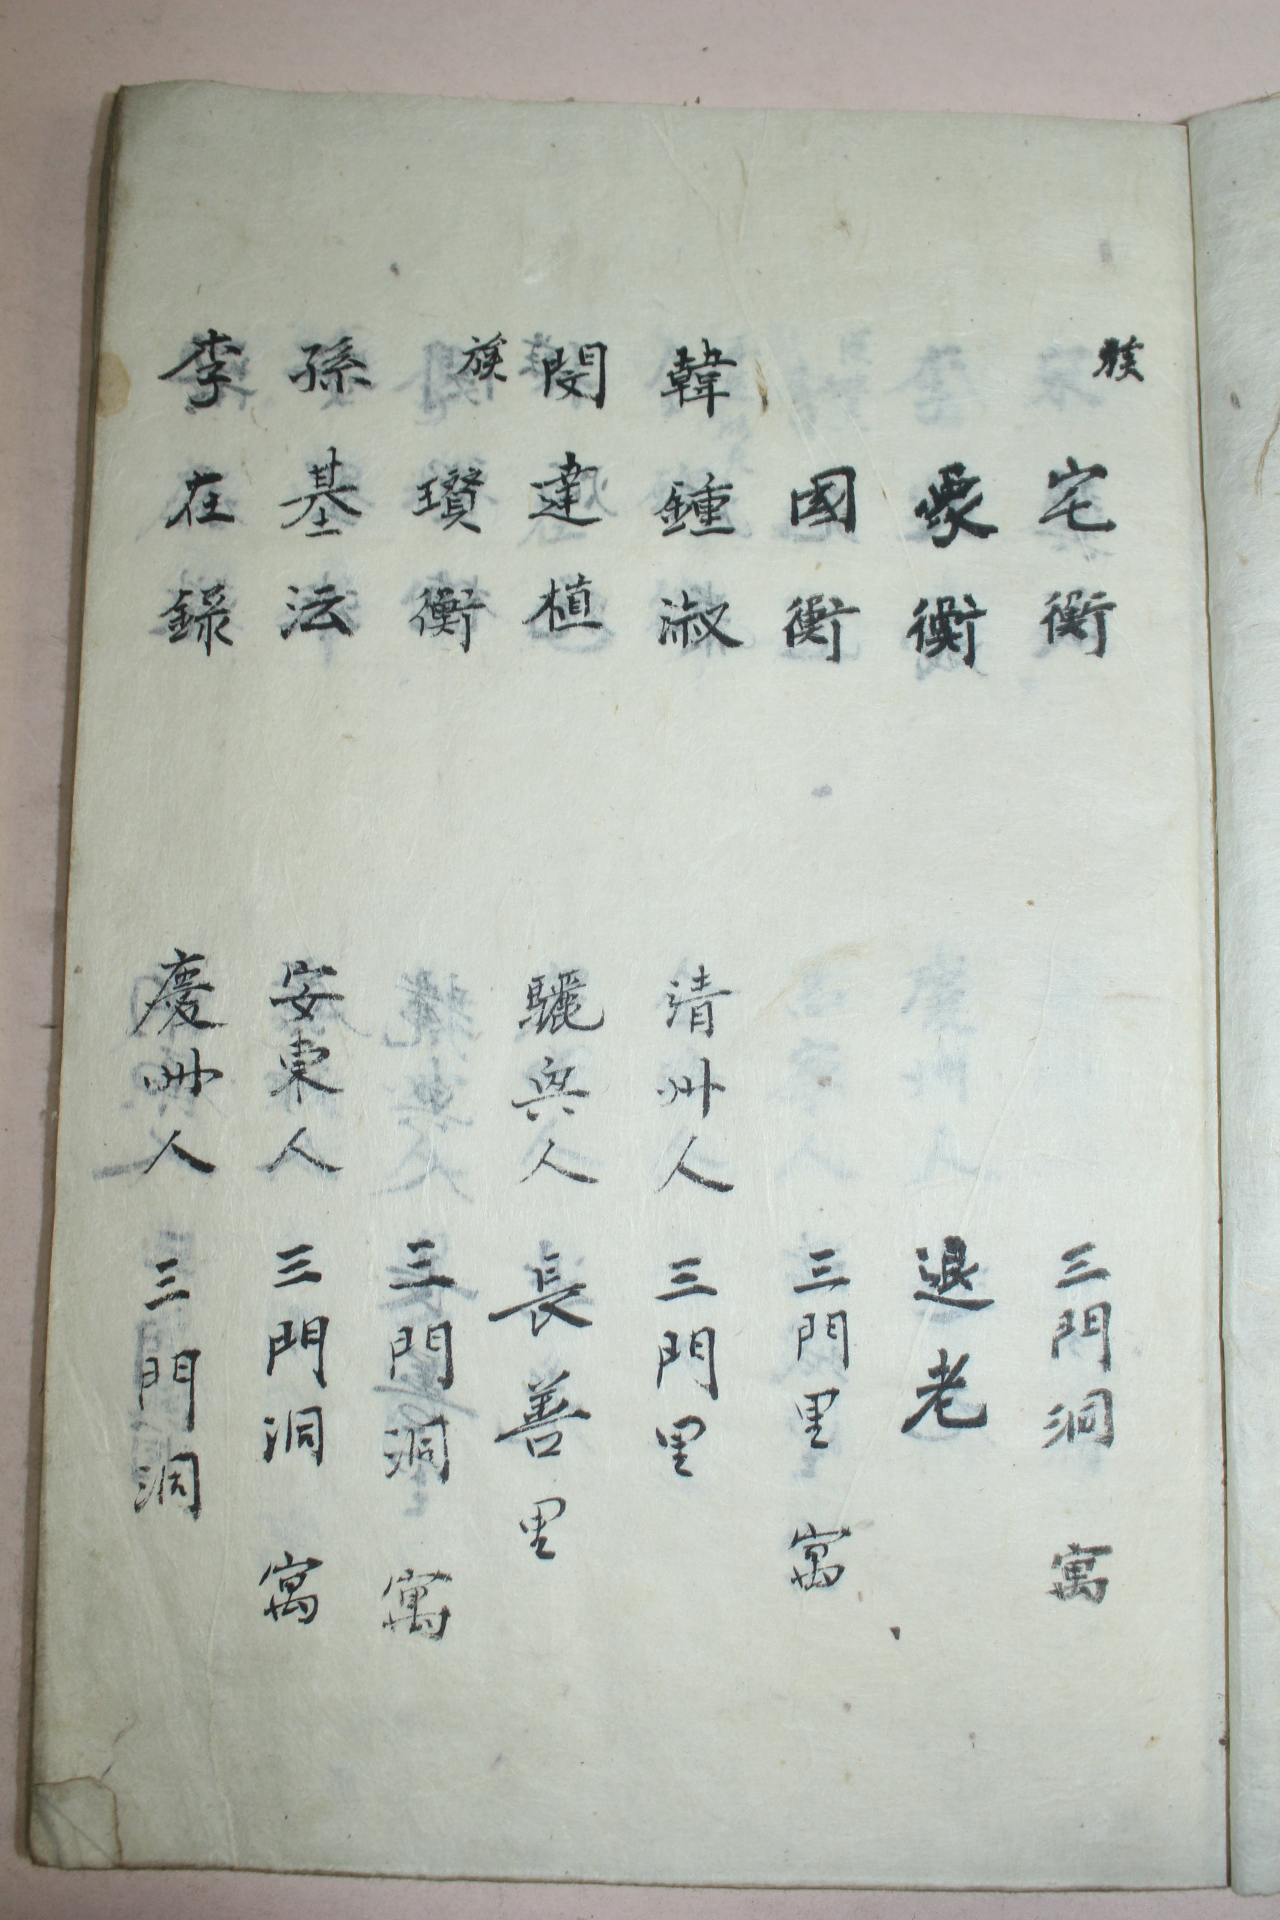 族 宅衡 三門洞 寓
衆衡 退老
國衡 三門里 寓
韓鍾淑 清州人 三門里
閔達植 驪興人 長善里
族 瓚衡 三門洞 寓
孫基法 安東人 三門洞 寓
李在錄 慶州人 三門洞